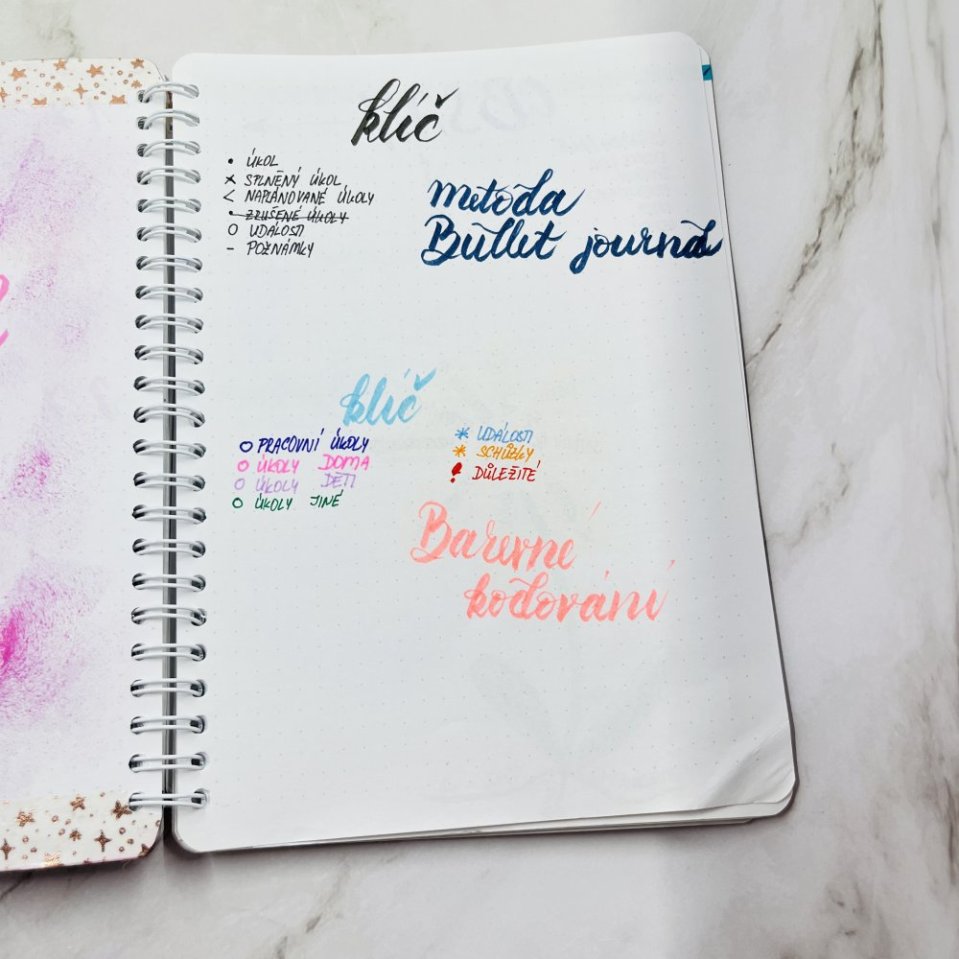 klíč
• ÚKOL
× SPLNĚNÝ ÚKOL
< NAPLÁNOVANÉ ÚKOLY
• ZRUŠENÉ ÚKOLY
O UDÁLOSTI
– POZNÁMKY
metoda
Bullet journal
klíč
O PRACOVNÍ ÚKOLY
O ÚKOLY DOMA
O ÚKOLY DĚTI
O ÚKOLY JINÉ
* UDÁLOSTI
* SCHŮZKY
! DŮLEŽITÉ
Barevné
kódování